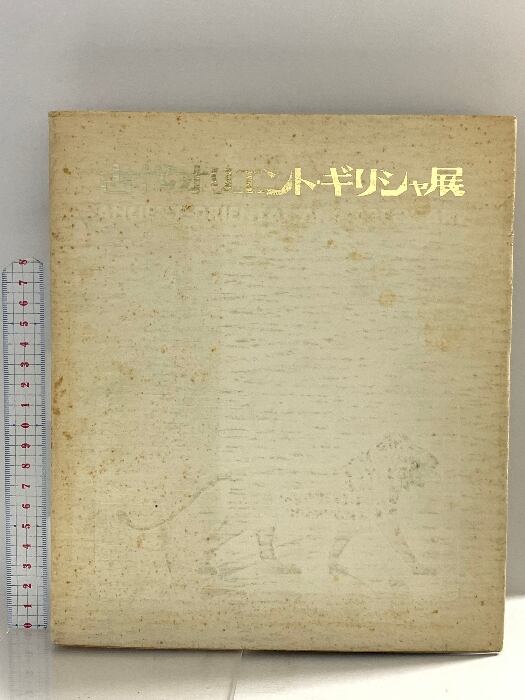 古代オリエント・ギリシャ展
ANCIENT ORIENTAL
0 1 2 3 4 5 6 7 8 9 0 1 2 3 4 5 6 7 8